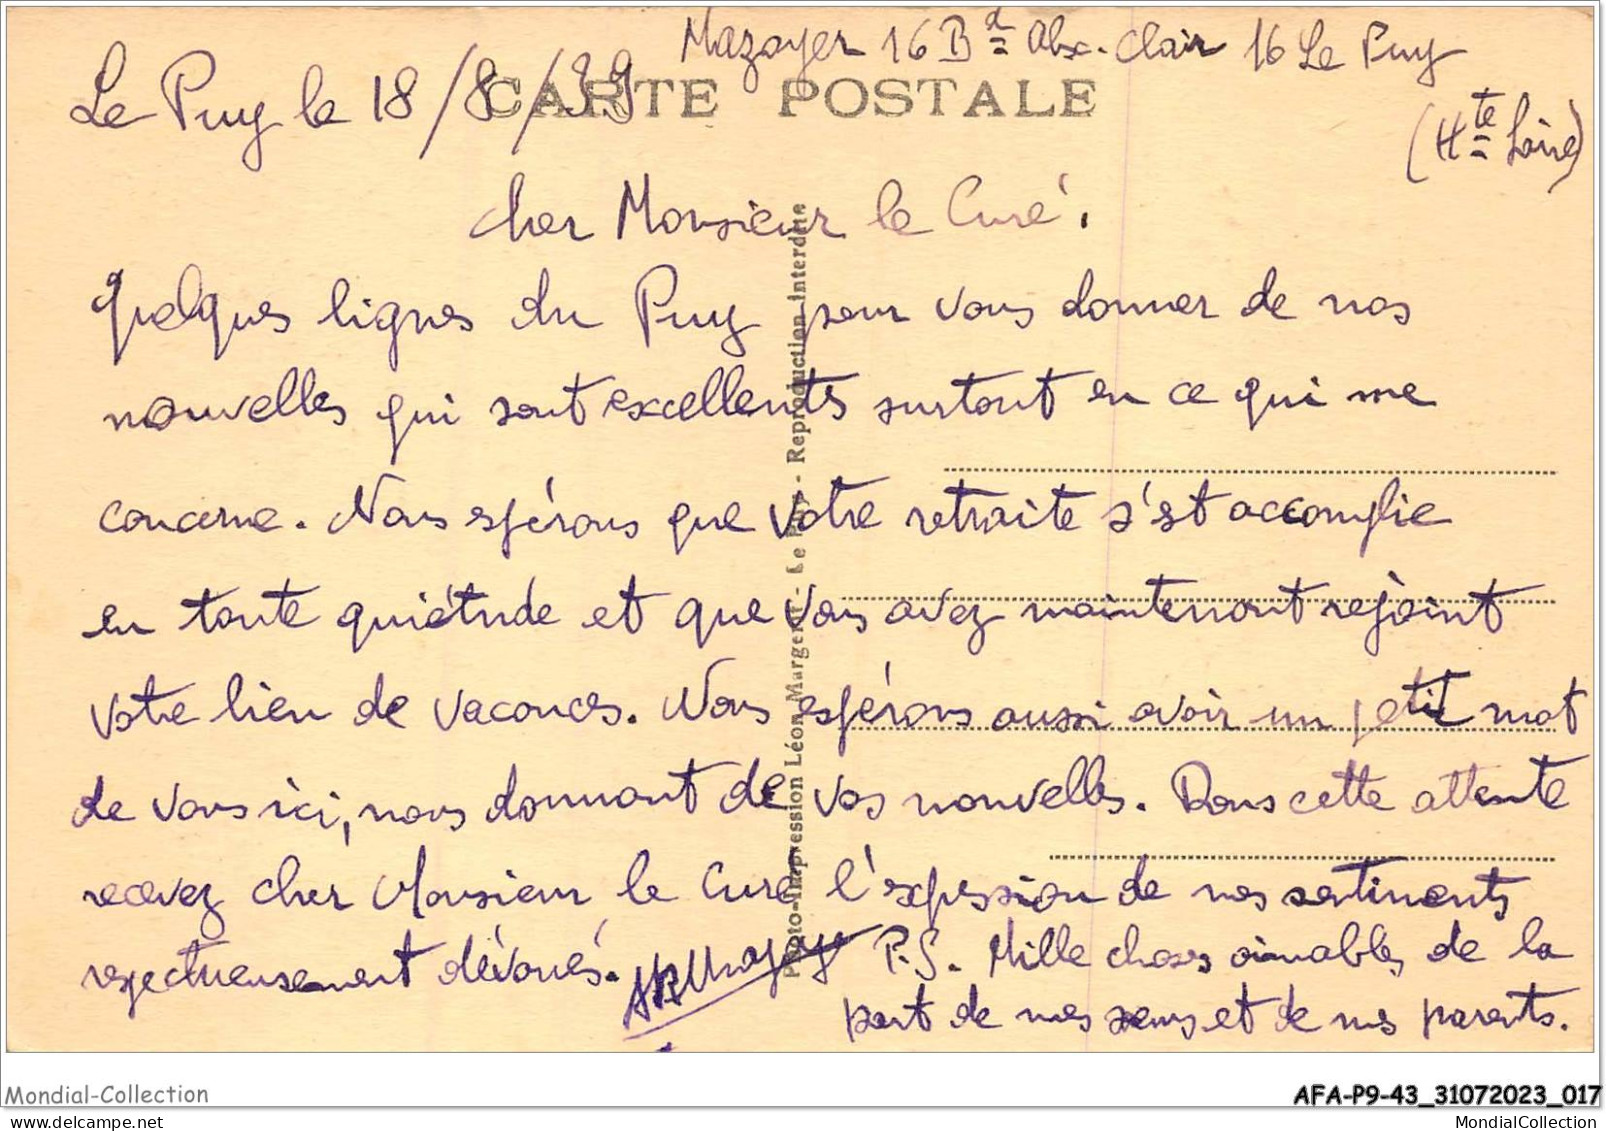 Mazoyer 16 Bd Alex. Clair 16 Le Puy
(Hte Loire)
Le Puy le 18/8/39
CARTE POSTALE
Cher Monsieur le Curé,
Quelques lignes du Puy pour vous donner de nos
nouvelles qui sont excellents surtout en ce qui me
concerne. Nous espérons que votre retraite s'est accomplie
en toute quiétude et que vous avez maintenant rejoint
votre lieu de vacances. Nous espérons aussi avoir un petit mot
de vous ici, nous donnant de vos nouvelles. Dans cette attente
recevez cher Monsieur le Curé l'expession de nos sentiments
respectueusement dévoués.
P.S. Mille choses aimables de la
part de mes sœurs et de mes parents.
Photo-Impression Léon Margerit - Le Puy - Reproduction interdite
Mondial-Collection
AFA-P9-43_31072023_017
mondial-collection.delcampe.net
MondialCollection